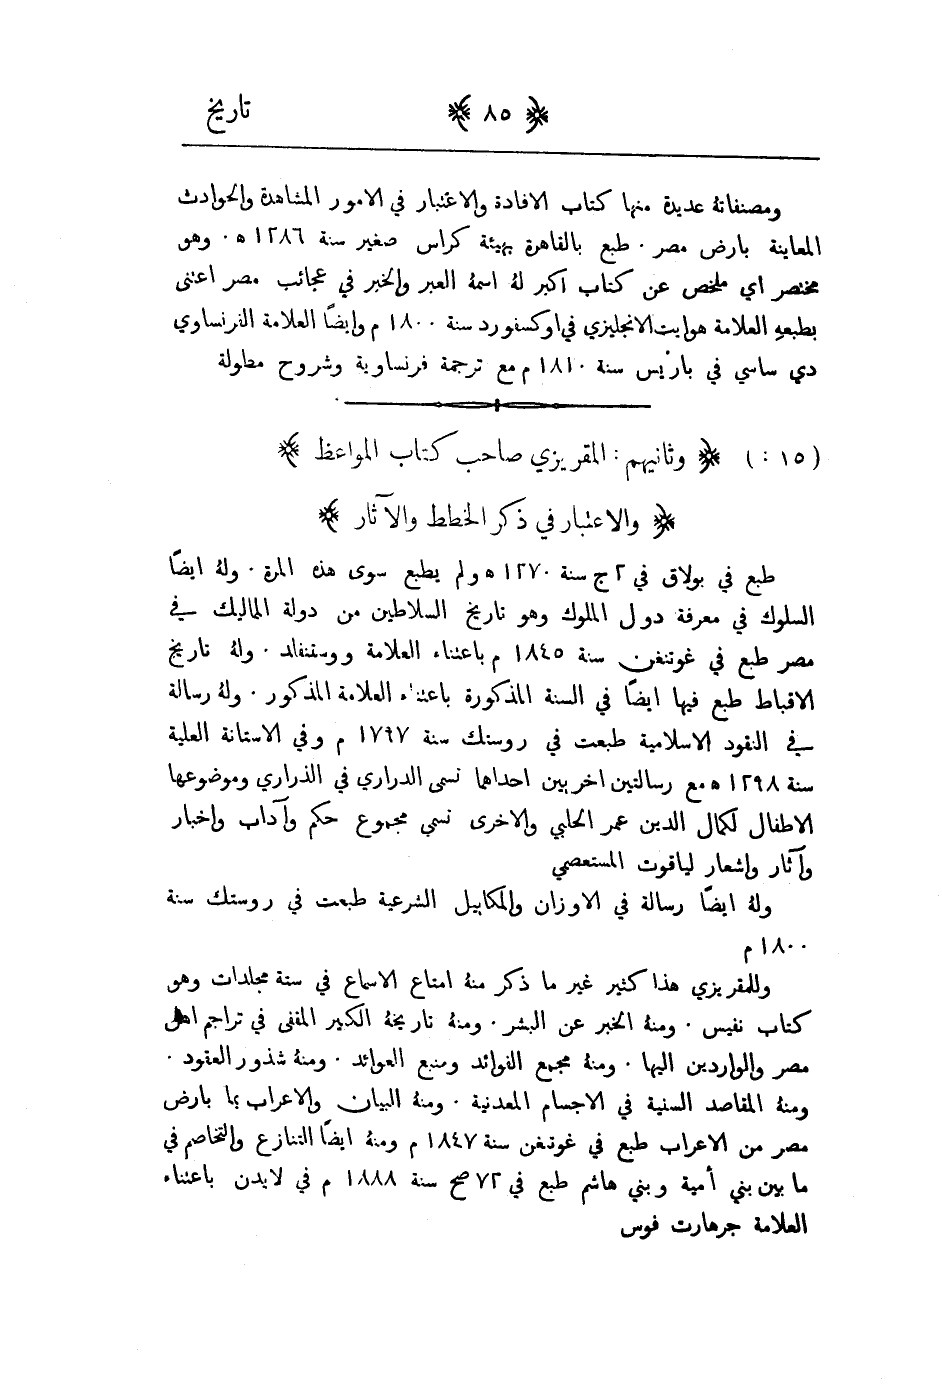 تاريخ ﴿ ٨٥ ﴾
ومصنفاتهُ عديدة منها كتاب الافادة والاعتبار في الامور المشاهدة والحوادث
المعاينة بارض مصر ٠ طبع بالقاهرة بهيئة كراس صغير سنة ١٢٨٦ ه ٠ وهو
مختصر اي ملخص عن كتاب اكبر لهُ اسمهُ العبر والخبر في عجائب مصر اعتنى
بطبعهِ العلامة هوايت الانجليزي في اوكسفورد سنة ١٨٠٠ م وايضًا العلامة الفرنساوي
دي ساسي في باريس سنة ١٨١٠ م مع ترجمة فرنساوية وشروح مطولة
(١٥ : ) ﴿ وثانيهم : المقريزي صاحب كتاب المواعظ ﴾
﴿ والاعتبار في ذكر الخطط والآثار ﴾
طبع في بولاق في ٢ ج سنة ١٢٧٠ ه ولم يطبع سوى هذه المرة ٠ ولهُ ايضًا
السلوك في معرفة دول الملوك وهو تاريخ السلاطين من دولة المماليك في
مصر طبع في غوتنغن سنة ١٨٤٥ م باعتناء العلامة ووستنفلد ٠ ولهُ تاريخ
الاقباط طبع فيها ايضًا في السنة المذكورة باعتناء العلامة المذكور ٠ ولهُ رسالة
في النقود الاسلامية طبعت في روستك سنة ١٧٩٧ م وفي الاستانة العلية
سنة ١٢٩٨ ه مع رسالتين اخريين احداهما تسمى الدراري في الذراري وموضوعها
الاطفال لكمال الدين عمر الحلبي والاخرى تسمى مجموع حكم وآداب واخبار
وآثار واشعار لياقوت المستعصمي
ولهُ ايضًا رسالة في الاوزان والمكاييل الشرعية طبعت في روستك سنة
١٨٠٠ م
وللمقريزي هذا كثير غير ما ذكر منهُ امتاع الاسماع في ستة مجلدات وهو
كتاب نفيس ٠ ومنهُ الخبر عن البشر ٠ ومنهُ تاريخهُ الكبير المقفى في تراجم اهل
مصر والواردين اليها ٠ ومنهُ مجمع الفوائد ومنبع العوائد ٠ ومنهُ شذور العقود ٠
ومنهُ المقاصد السنية في الاجسام المعدنية ٠ ومنهُ البيان والاعراب بما بارض
مصر من الاعراب طبع في غوتنغن سنة ١٨٤٧ م ومنهُ ايضًا التنازع والتخاصم في
ما بين بني أمية وبني هاشم طبع في ٧٢ صح سنة ١٨٨٨ م في لايدن باعتناء
العلامة جرهارت فوس